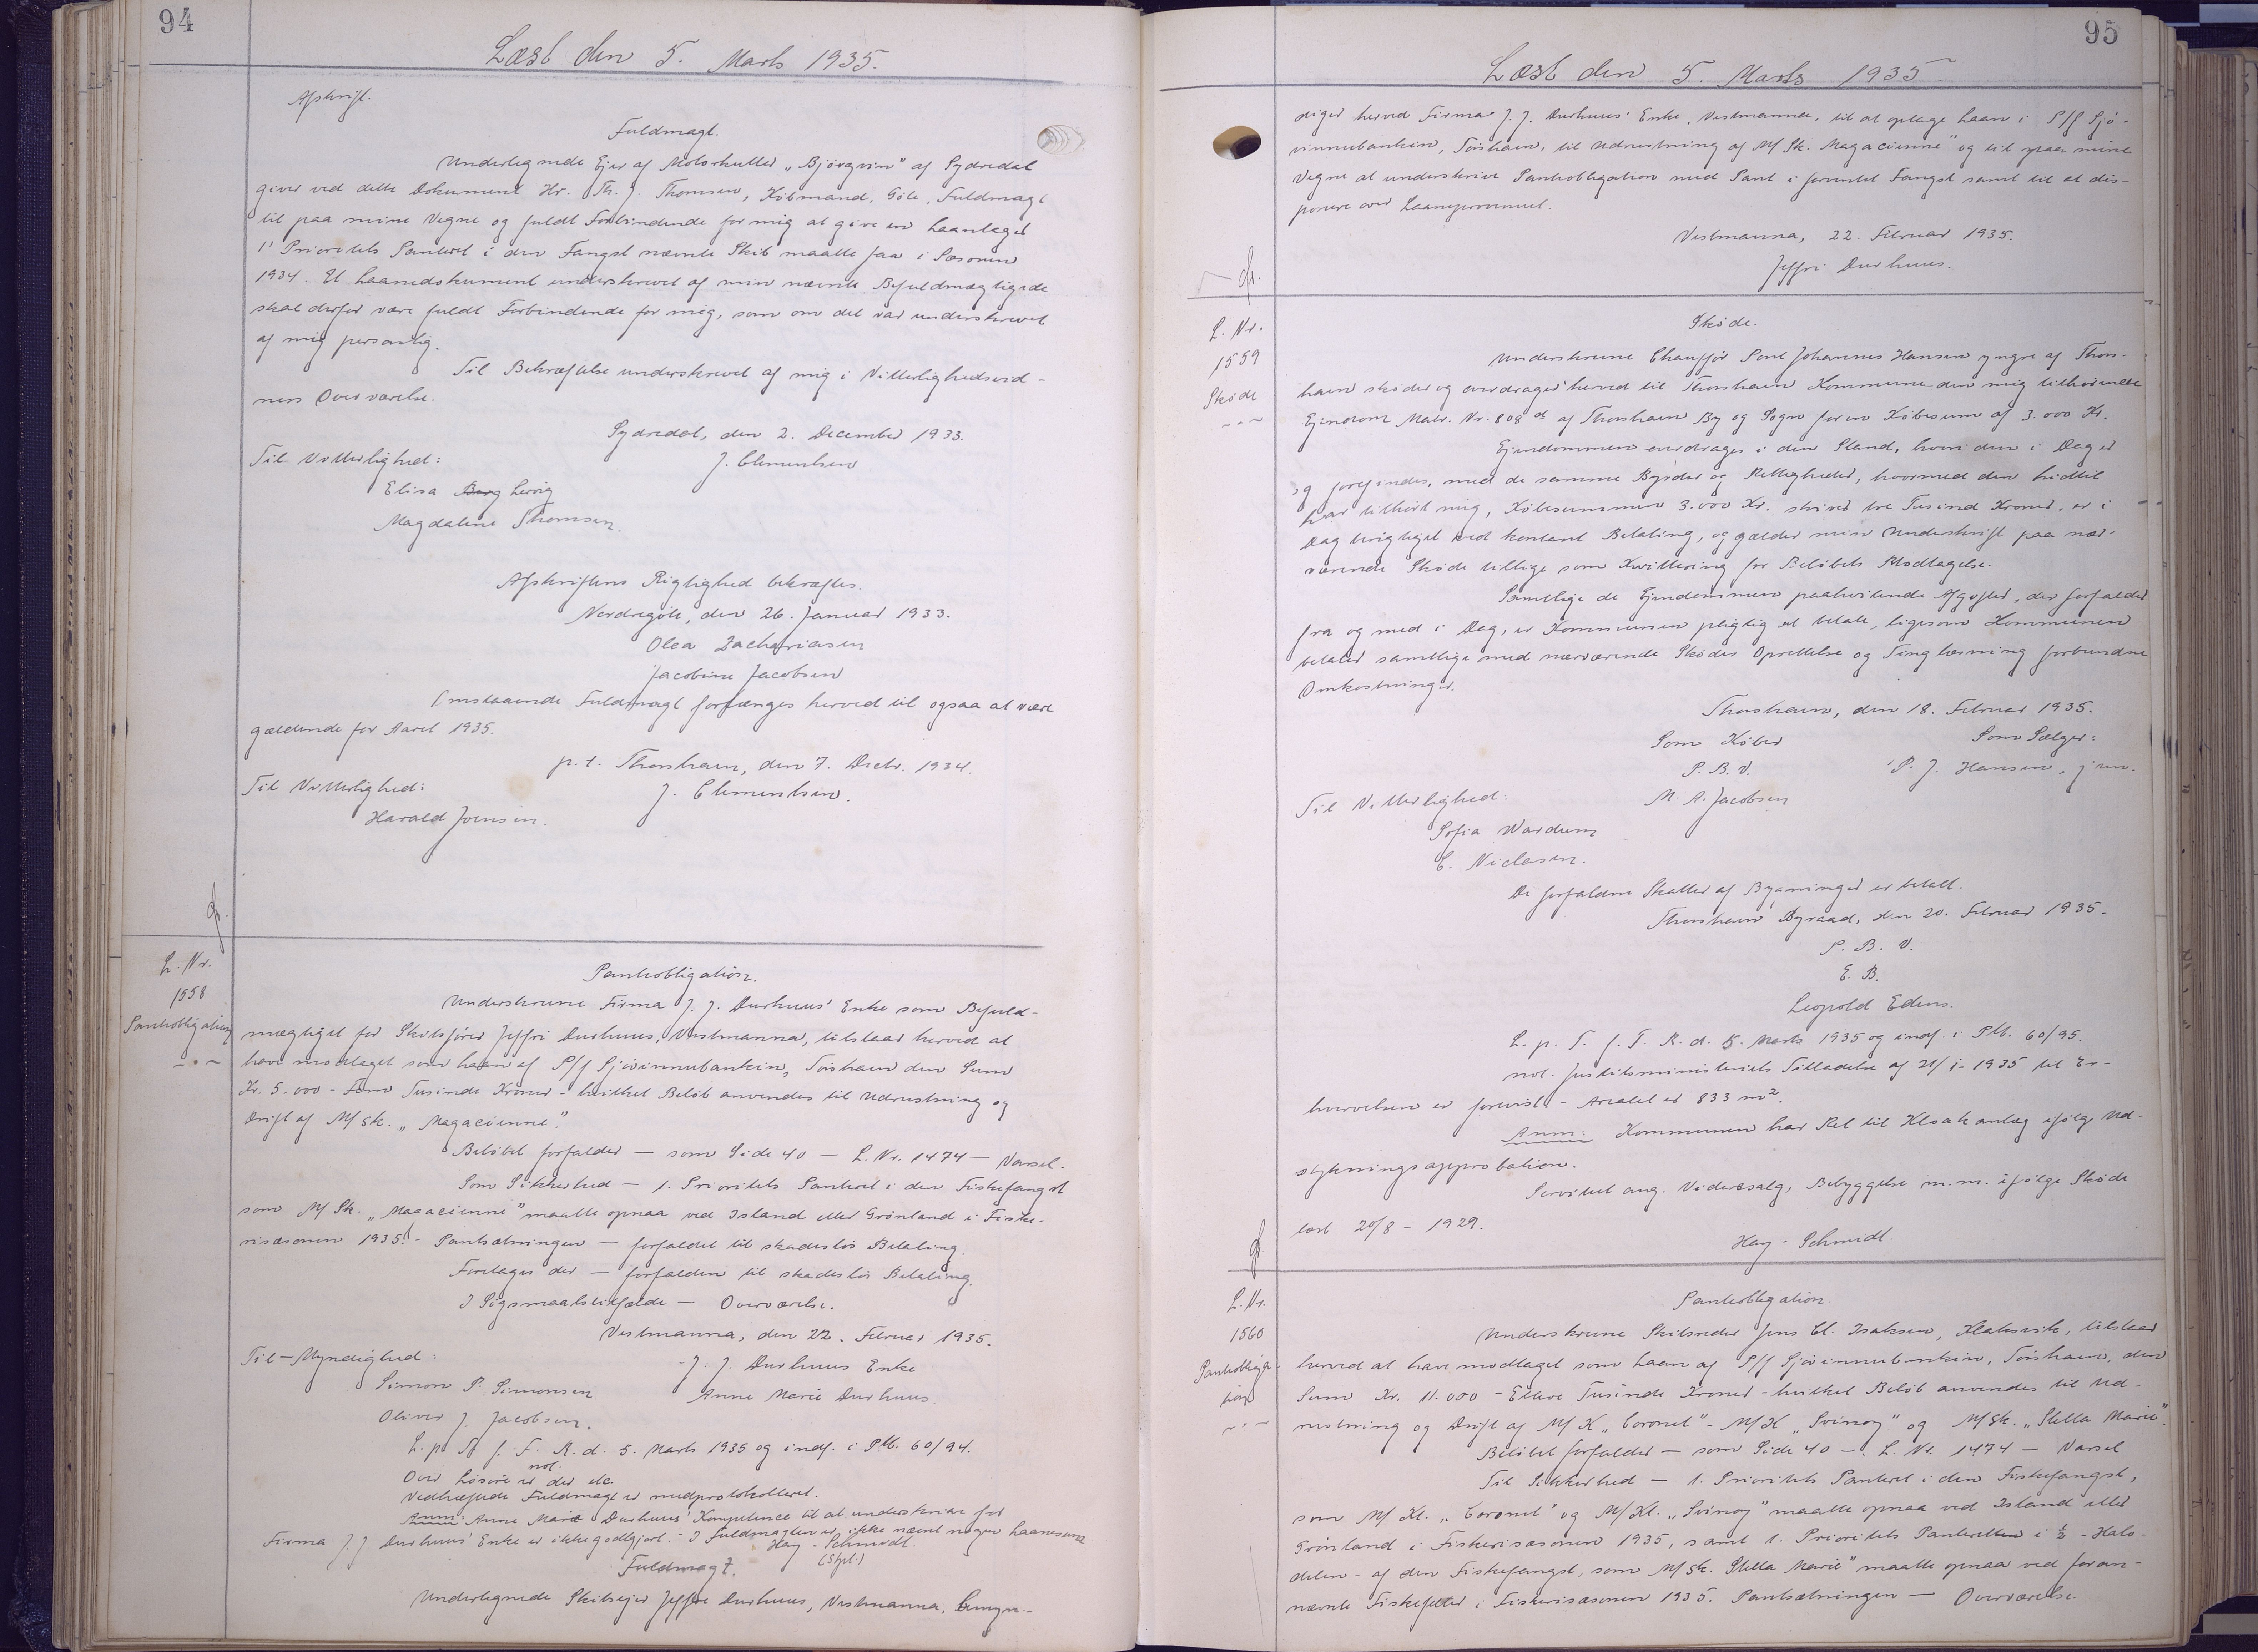 94
Læst den 5. Marts 1935.
Afskrift.
Fuldmagt.
Undertegnede Ejer af Motorkutter „Bjørgvin" af Sydredal
giver ved dette Dokument Hr. Th. J. Thomsen, Købmand, Göte, Fuldmagt
til paa mine Vegne og fuldt Forbindende for mig at give en Laantager
1' Prioritets Panteret i den Fangst nævnte Skib maatte faa i Sæsonen
1934. Et Laanedokument underskrevet af min nævnte Befuldmægtigede
skal derfor være fuldt Forbindende for mig, som om det var underskrevet
af mig personlig.
Til Bekræftelse underskrevet af mig i Vitterlighedsvid-
ners Overværelse.
Sydredal, den 2. December 1933.
Til Vitterlighed:
J. Clementsen
Elisa Berg Lervig
Magdalene Thomsen.
Afskriftens Rigtighed bekræftes.
Nordregöte, den 26. Januar 1933.
Olea Zachariasen
Jacobine Jacobsen
Omstaaende Fuldmagt forlænges herved til ogsaa at være
gældende for Aaret 1935.
p.t. Thorshavn, den 7. Decbr. 1934.
Til Vitterlighed:
J. Clementsen.
Harald Joensen.
L. Nr.
1558
Pantobligation
Pantobligation.
Underskrevne Firma J. J. Durhuus' Enke som Befuld-
mægtiget for Skibsfører Jeffri Durhuus, Vestmanna, tilstaar herved at
have modtaget som Laan af P/f Sjóvinnubankin, Tórshavn den Sum
Kr. 5.000 - Fem Tusinde Kroner - hvilket Beløb anvendes til Udrustning og
Drift af M/Sk. „Magacienne".
Beløbet forfalder — som Side 40 — L. Nr. 1474 — Varsel.
Som Sikkerhed — 1. Prioritets Panteret i den Fiskefangst
som M/Sk. „Magacienne" maatte opnaa ved Island eller Grønland i Fiske-
risæsonen 1935. - Pantsætningen — forfaldet til skadesløs Betaling.
Foretages der — forfalden til skadesløs Betaling.
I Søgsmaalstilfælde — Overværelse.
Vestmanna, den 22. Februar 1935.
Til — Myndighed:
J. J. Durhuus Enke
Simon P. Simonsen
Anne Marie Durhuus.
Oliver J. Jacobsen.
L. p. T. f. F. R. d. 5. Marts 1935 og indf. i Ptb. 60/94.
not.
Over Løsøre er der etc.
Vedhæftede Fuldmagt er medprotokolleret.
Anm: Anne Marie Durhuus' Kompetence til at underskrive for
Firma J. J. Durhuus' Enke er ikke godtgjort. - I Fuldmagten er ikke nævnt nogen Laanesum
Hay-Schmidt
(Stpl.)
Fuldmagt.
Undertegnede Skibsejer Jeffri Durhuus, Vestmanna, bemyn-
95
Læst den 5. Marts 1935
diger herved Firma J. J. Durhuus' Enke, Vestmanna, til at optage Laan i P/f Sjó-
vinnubankin, Tórshavn, til Udrustning af M/Sk. Magacienne" og til paa mine
Vegne at underskrive Pantobligation med Pant i forventet Fangst samt til at dis-
ponere over Laaneprovenuet.
Vestmanna, 22. Februar 1935.
Jeffri Durhuus.
L. Nr.
1559
Skøde
Skøde.
Underskrevne Chauffør Poul Johannes Hansen yngre af Thors-
havn skøder og overdrager herved til Thorshavn Kommune den mig tilhørende
Ejendom Matr. Nr. 808 af Thorshavn By og Sogn for en Købesum af 3.000 Kr.
Ejendommen overdrages i den Stand, hvori den i Dag er
og forefindes, med de samme Byrder og Rettigheder, hvormed den hidtil
har tilhørt mig, Købesummen 3.000 Kr. skriver tre Tusind Kroner, er i
Dag berigtiget ved kontant Betaling, og gælder min Underskrift paa nær-
værende Skøde tillige som Kvittering for Beløbets Modtagelse.
Samtlige de Ejendommen paahvilende Afgifter, der forfalder
fra og med i Dag, er Kommunen pligtig at betale, ligesom Kommunen
betaler samtlige med nærværende Skødes Oprettelse og Tinglæsning forbundne
Omkostninger.
Thorshavn, den 18. Februar 1935.
Som Køber
Som Sælger:
P. B. V.
P. J. Hansen, jun.
Til Vitterlighed:
M. A. Jacobsen
Sofia Wardum
E. Niclasen.
De forfaldne Skatter af Bygninger er betalt.
Thorshavn Byraad, den 20. Februar 1935.
P. B. V.
E. B.
Leopold Edens.
L. p. T. f. T. R. d. 5. Marts 1935 og indf. i Ptb. 60/95.
not. Justitsministeriets Tilladelse af 21/1-1935 til Er-
hvervelsen er forevist. - Arealet er 833 m².
Anm: Kommunen har Ret til Kloakanlæg ifølge Ud-
stykningsapprobation.
Servitut ang. Videresalg, Bebyggelse m.m. ifølge Skøde
læst 20/8 - 1929.
Hay-Schmidt.
L. Nr.
1560
Pantobliga-
tion
Pantobligation.
Underskrevne Skibsreder Jens Cl. Isaksen, Klaksvik, tilstaar
herved at have modtaget som Laan af P/f Sjóvinnubankin, Tórshavn, den
Sum Kr. 11.000 - Elleve Tusinde Kroner - hvilket Beløb anvendes til Ud-
rustning og Drift af M/K „Coronet" - M/K „Svinoy" og M/Sk. „Stella Marie".
Beløbet forfalder — som Side 40 — L. Nr. 1474 — Varsel
Til Sikkerhed — 1. Prioritets Panteret i den Fiskefangst,
som M/Kt. „Coronet" og M/Kt. „Svinoy" maatte opnaa ved Island eller
Grønland i Fiskerisæsonen 1935, samt 1. Prioritets Panteretten i ½ - Halv-
delen - af den Fiskefangst, som M/Sk. Stella Marie" maatte opnaa ved foran-
nævnte Fiskefelter i Fiskerisæsonen 1935. Pantsætningen — Overværelse.